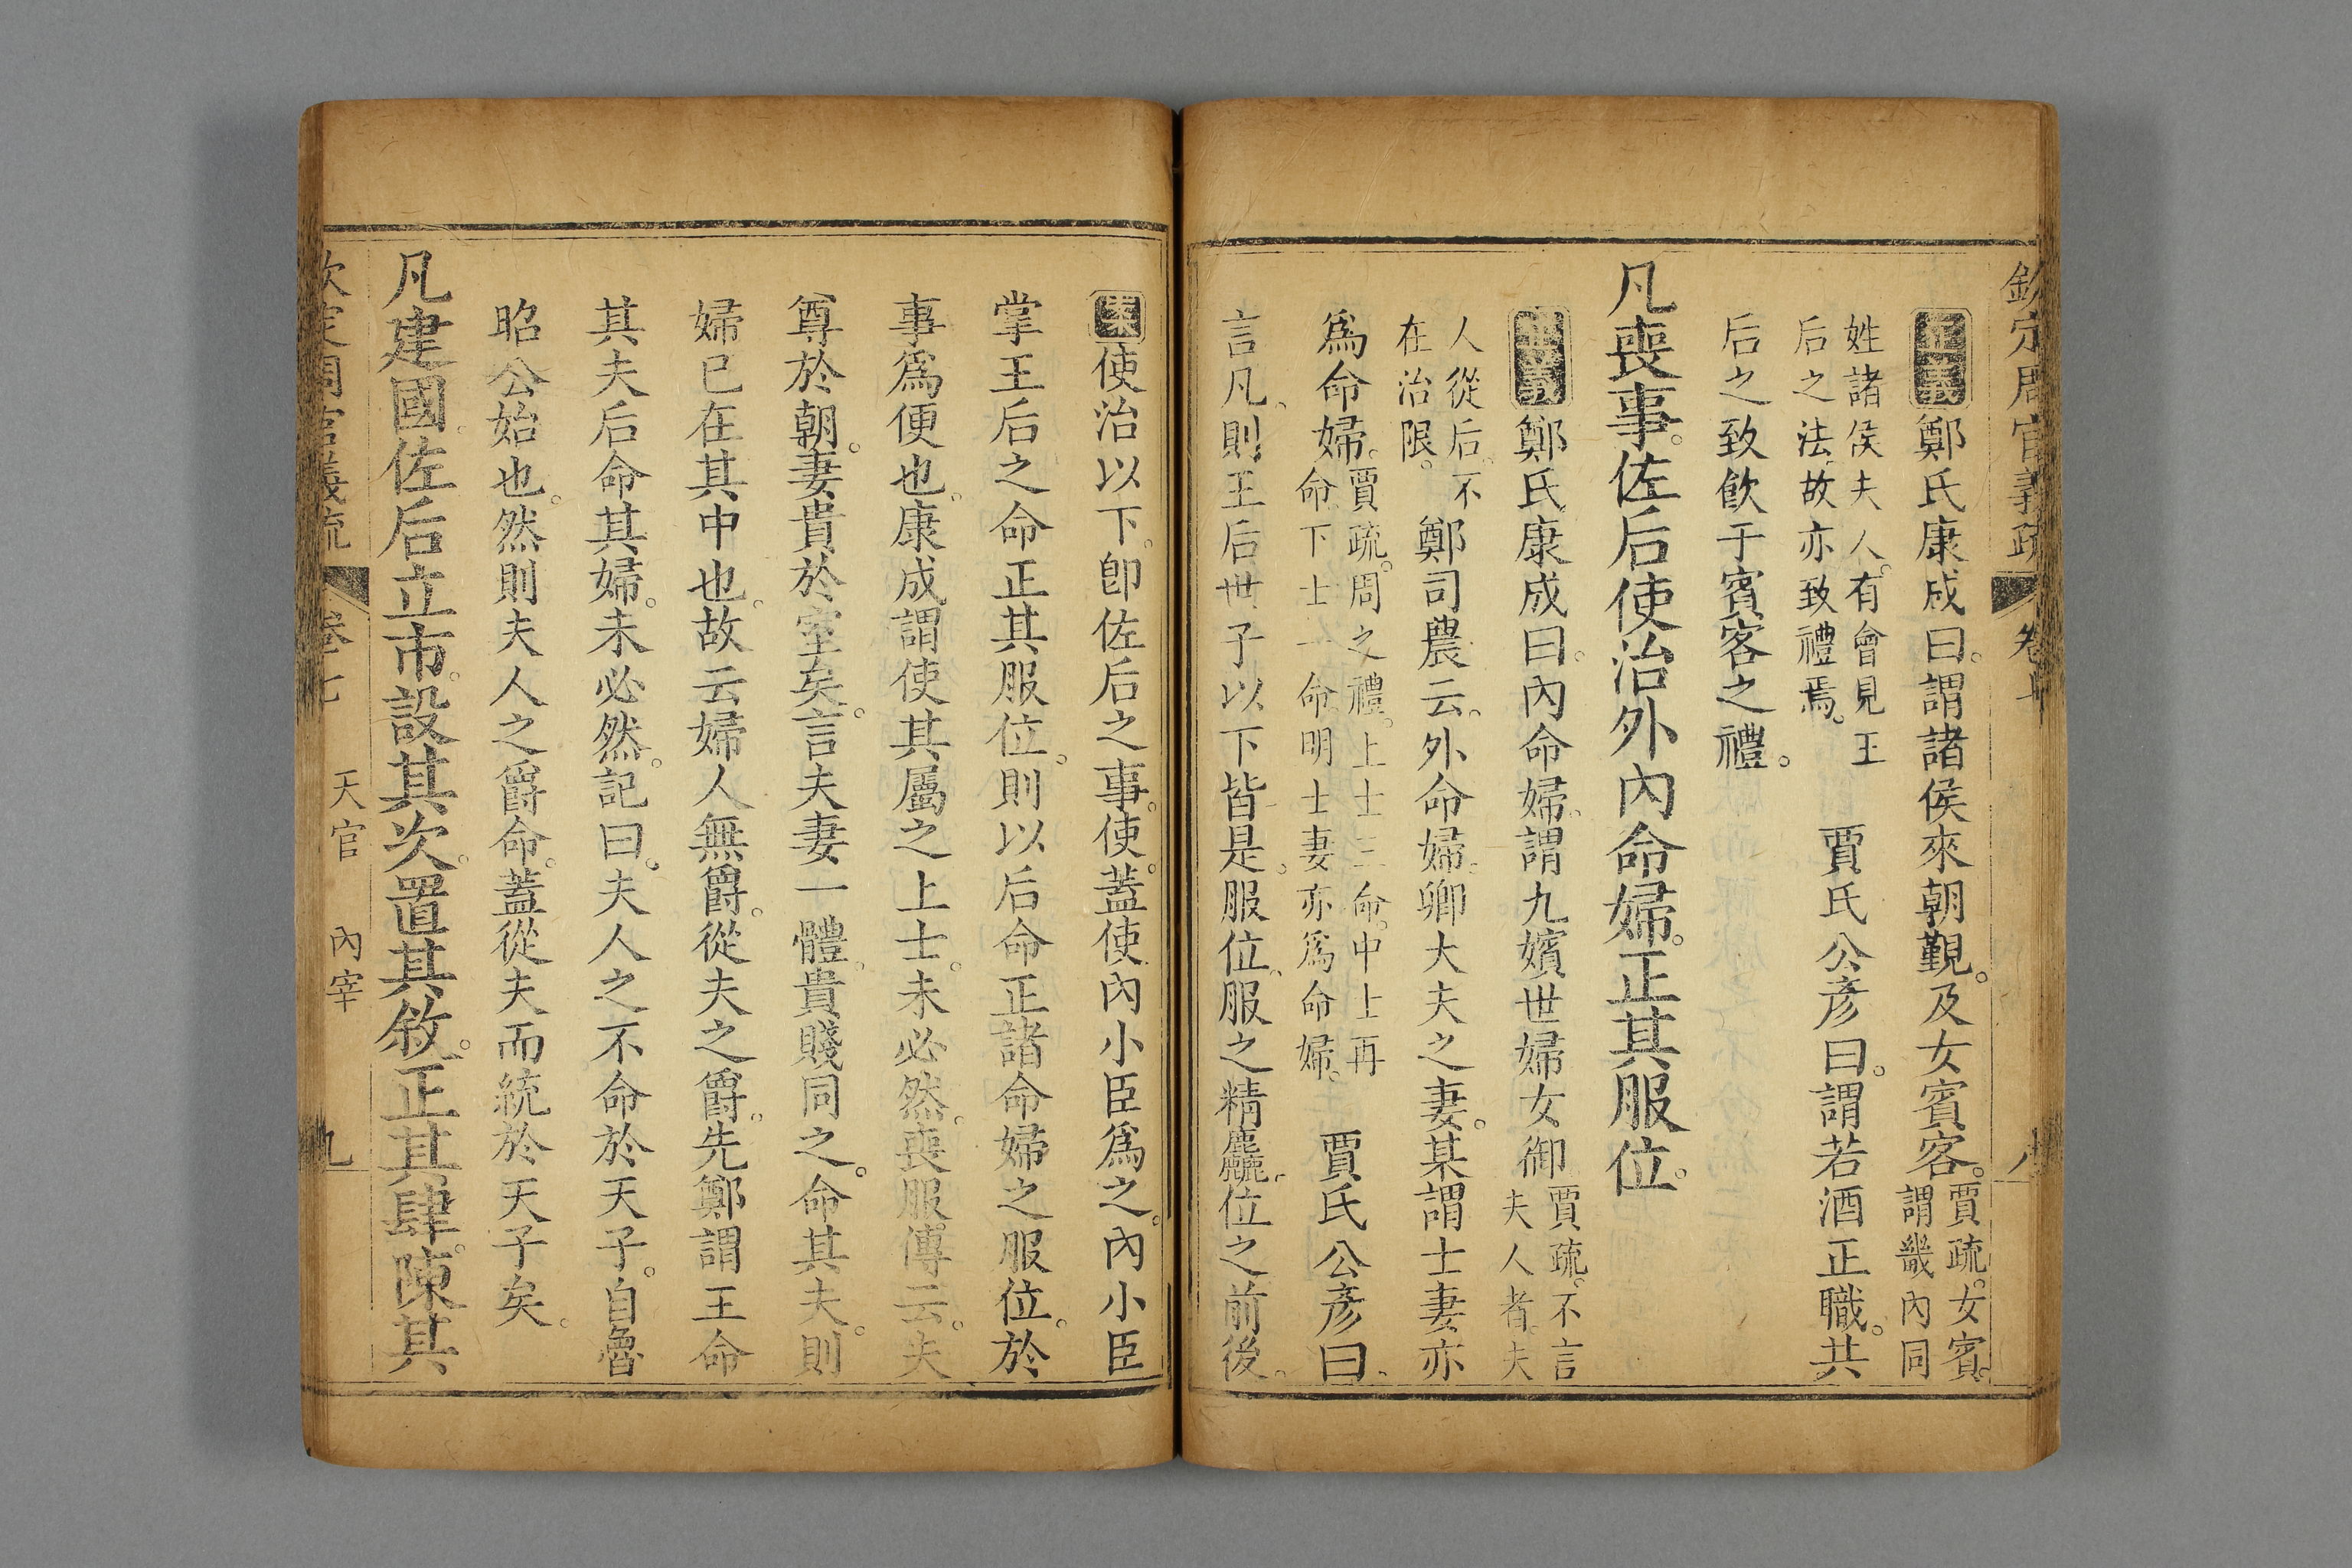 欽定周官義疏 卷七 八
正義鄭氏康成曰。謂諸侯來朝覲。及女賓客。賈疏。女賓。謂畿內同
姓諸侯夫人。有會見王后之法。故亦致禮焉。 賈氏公彥曰。謂若酒正職。共
后之致飲于賓客之禮。
凡喪事。佐后使治外內命婦。正其服位。
正義鄭氏康成曰。內命婦。謂九嬪世婦女御賈疏。不言夫人者。夫
人從后。不在治限。 鄭司農云。外命婦。卿大夫之妻。某謂士妻亦
爲命婦。賈疏。周之禮。上士三命。中士再命。下士一命。明士妻亦爲命婦。 賈氏公彥曰。
言凡。則王后世子以下皆是。服位。服之精麤。位之前後。
案使治以下。卽佐后之事。使。蓋使內小臣爲之。內小臣
掌王后之命正其服位。則以后命正諸命婦之服位。於
事爲便也。康成謂使其屬之上士。未必然。喪服傳云。夫
尊於朝。妻貴於室矣。言夫妻一體。貴賤同之。命其夫。則
婦已在其中也。故云婦人無爵。從夫之爵。先鄭謂王命
其夫后命其婦。未必然。記曰。夫人之不命於天子。自魯
昭公始也。然則夫人之爵命。蓋從夫而統於天子矣。
凡建國。佐后立市。設其次。置其敘。正其肆。陳其
欽定周官義疏 卷七 天官 內宰 九